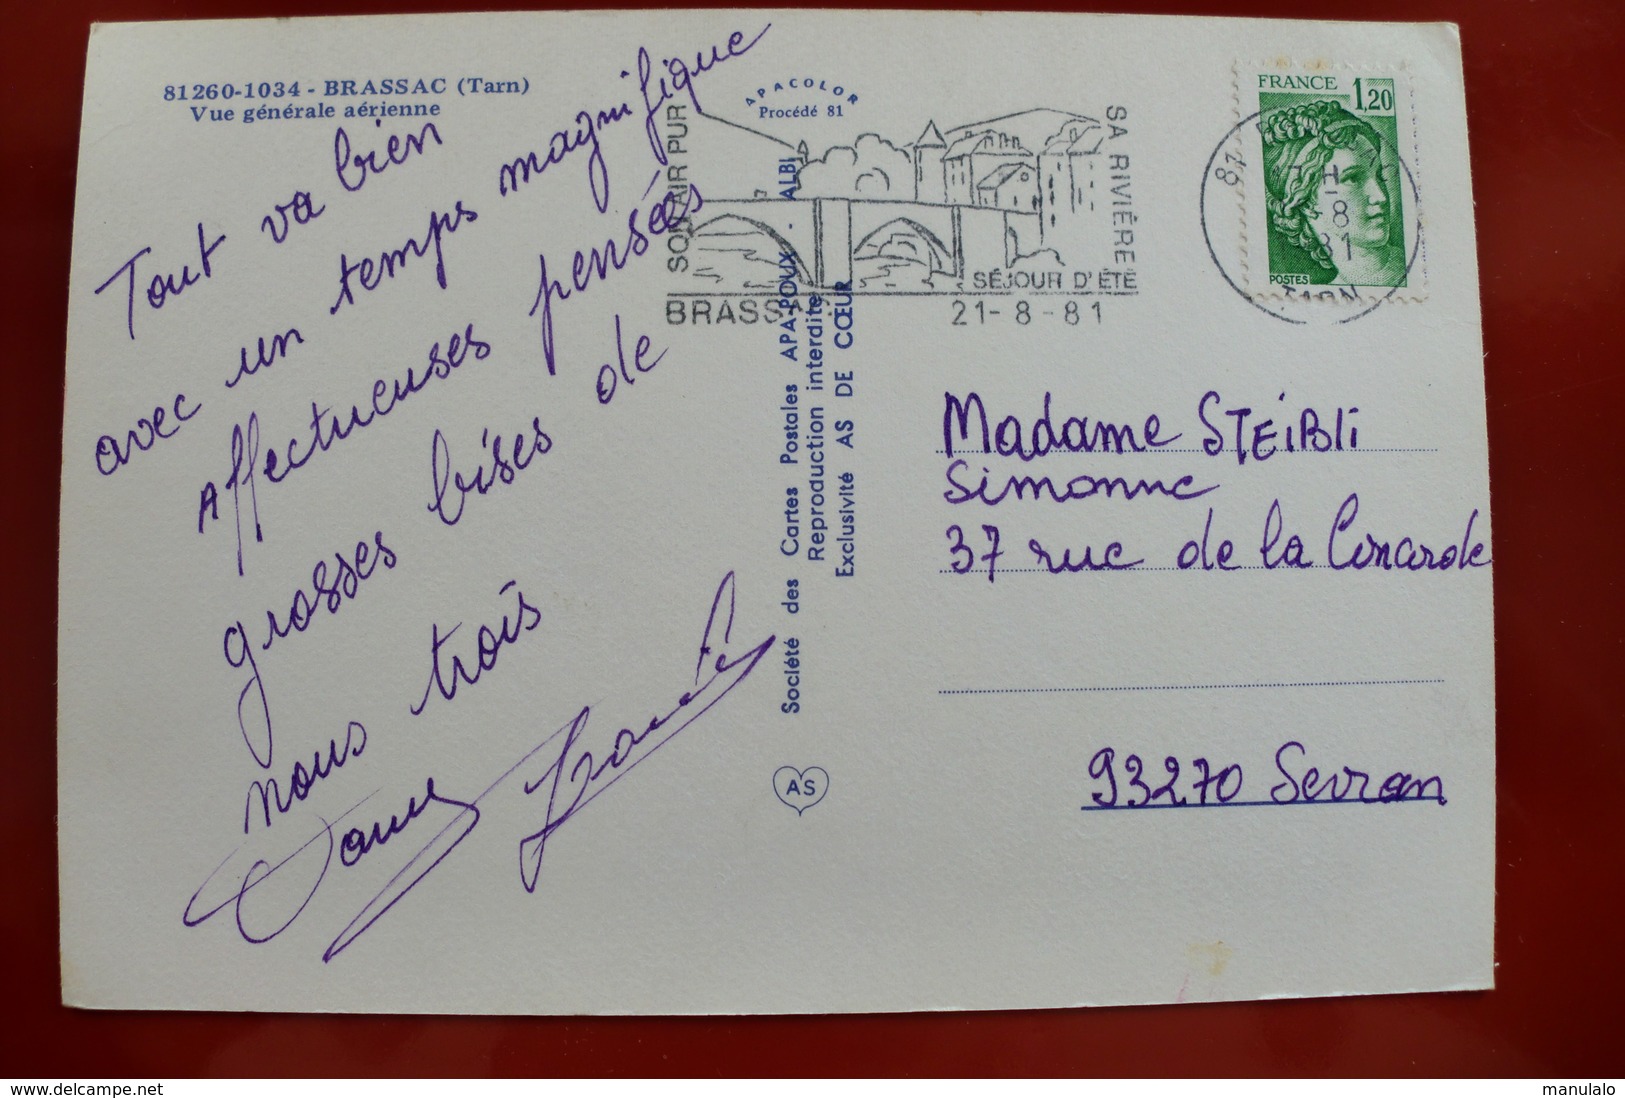 81260-1034 - BRASSAC (Tarn)
Vue générale aérienne
Tout va bien
avec un temps magnifique
Affectueuses pensées
grosses bises de
nous trois
APACOLOR
Procédé 81
SON AIR PUR
SA RIVIÈRE
SÉJOUR D'ÉTÉ
BRASSAC
21-8-81
Société des Cartes Postales APA-POUX - ALBI
Reproduction interdite
Exclusivité AS DE CŒUR
AS
FRANCE 1,20
POSTES
81
17 H
-8
81
TARN
Madame STEiBli
Simonne
37 rue de la
93270 Sevran
delcampe.net
manulalo